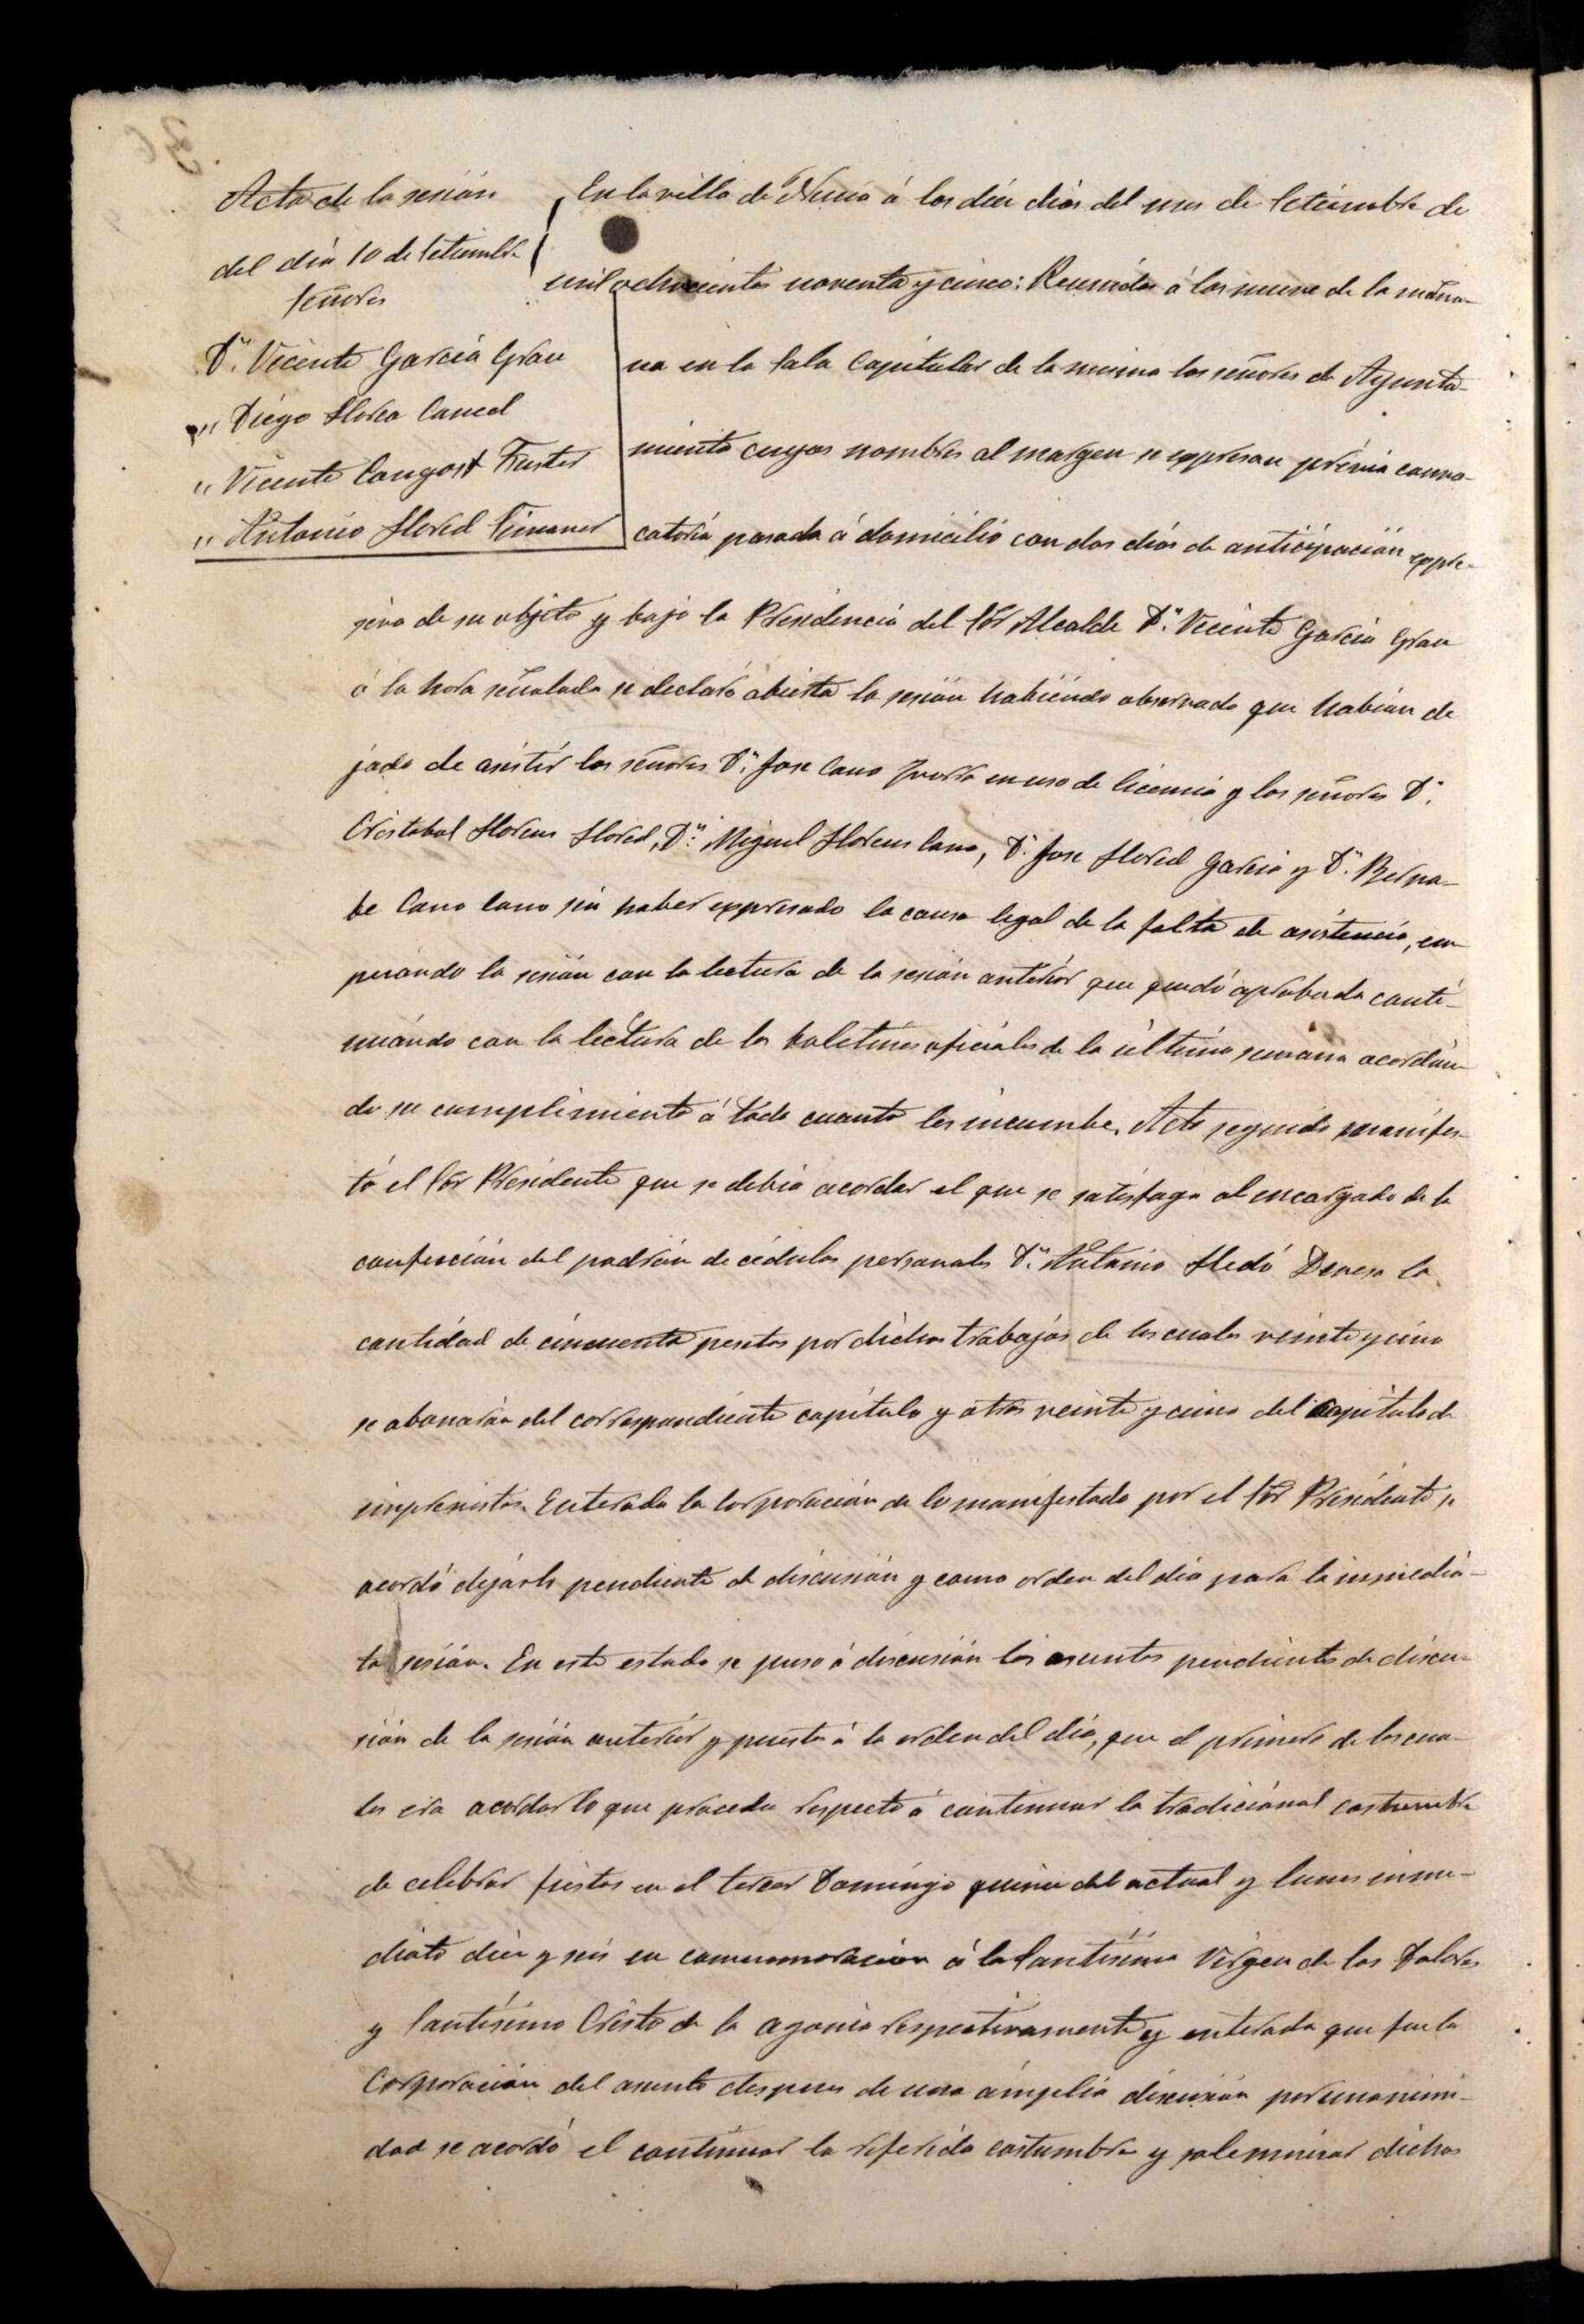 Acta de la sesión
del dia 10 de Setiembre
Señores
Dn. Vicente Garcia Grau
" Diego Llorca
" Vicente Llangost Fuster
" Antonio Lloret
En la villa de Nucia á los diez dias del mes de Setiembre de
mil ochocientos noventa y cinco: Reunidos á las nueve de la maña-
na en la Sala Capitular de la misma los señores de Ayunta-
miento cuyos nombres al margen se expresan prévia convo-
catoria pasada á domicilio con dos dias de anticipación expre-
siva de su objeto y bajo la Presidencia del Sor Alcalde Dn. Vicente Garcia Grau
á la hora señalada se declaró abierta la sesión habiendo observado que habian de
jado de asistir los señores Dn. Jose Cano en uso de licencia y los señores Dn.
Cristobal Llorens Lloret, Dn. Miguel Llorens Cano, Dn. Jose Lloret Garcia y Dn. Berna-
be Cano Cano sin haber expresado la causa legal de la falta de asistencia, em
pezando la sesión con la lectura de la sesión anterior que quedó aprobada conti-
nuando con la lectura de los boletines oficiales de la última semana acordan-
do su cumplimiento á todo cuanto les incumbe. Acto seguido manifes-
tó el Sor Presidente que se debia acordar el que se satisfaga al encargado de la
confección del padrón de cédulas personales Dn. Antonio Lledó Devesa la
cantidad de cincuenta pesetas por dichos trabajos de los cuales veinte y cinco
se abonarán del correspondiente capítulo y otras veinte y cinco del Capitulo de
imprevistos. Enterada la Corporación de lo manifestado por el Sor Presidente se
acordó dejarlo pendiente de discusión y como orden del dia para la inmedia-
ta sesión. En este estado se puso á discusión los asuntos pendientes de discu-
sión de la sesión anterior y puesta á la orden del dia, que el primero de los cua-
les era acordar lo que proceda respecto á continuar la tradicional costumbre
de celebrar fiestas en el tercer Domingo quince del actual y lunes inme-
diato diez y seis en conmemoración á la Santísima Vírgen de los Dolores
y Santísimo Cristo de la agonia respectivamente y enterada que fue la
Corporación del asunto despues de una ámplia discusión por unanimi-
dad se acordó el continuar la referida costumbre y solemnizar dichas